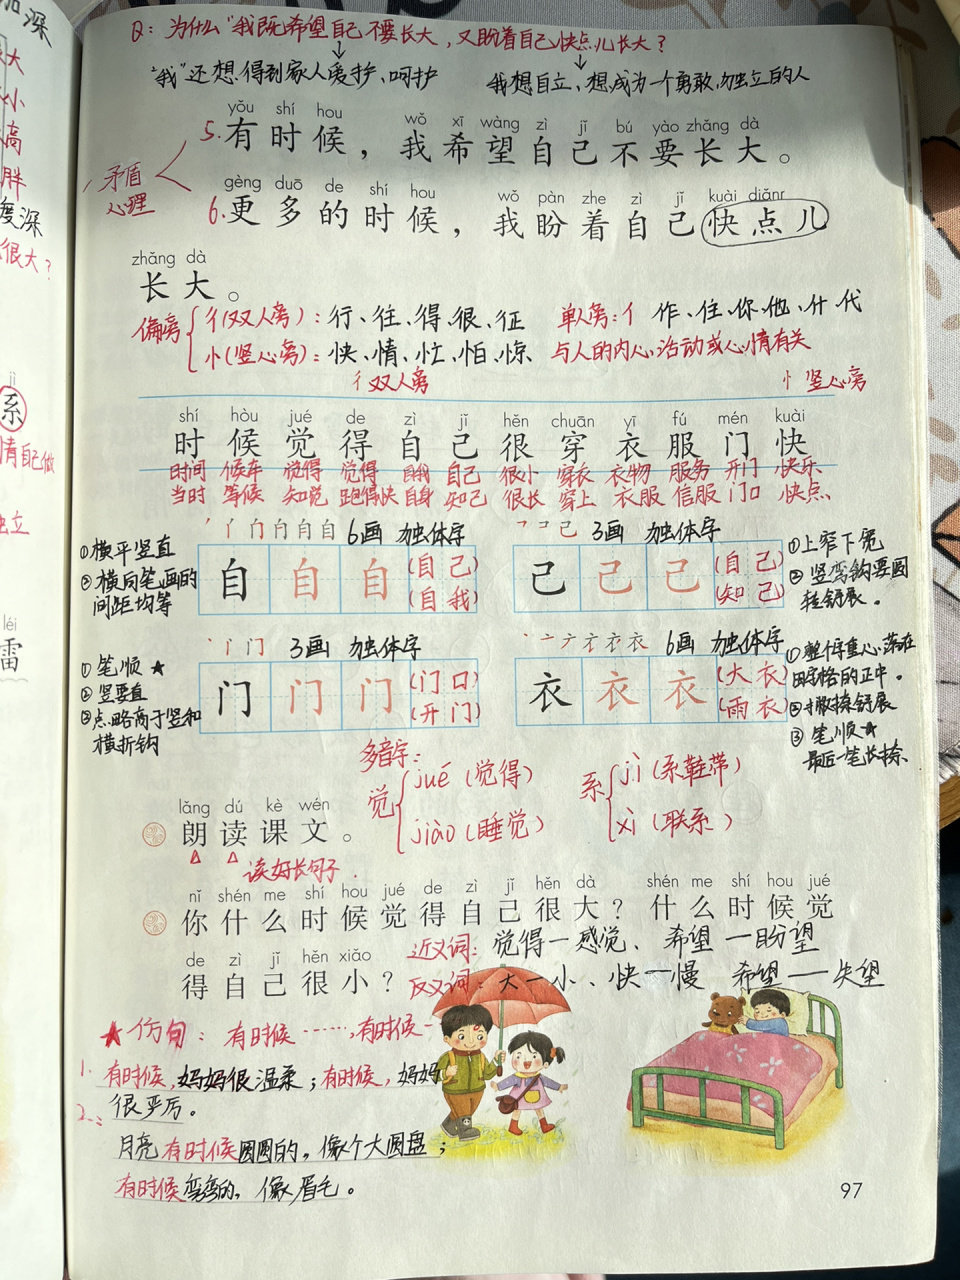 Q：为什么"我既希望自己不要长大，又盼着自己快点儿长大？
"我"还想得到家人爱护、呵护
我想自立、想成为一个勇敢、独立的人
yǒu shí hou wǒ xī wàng zì jǐ bú yào zhǎng dà
5.有时候，我希望自己不要长大。
矛盾心理
gèng duō de shí hou wǒ pàn zhe zì jǐ kuài diǎnr
6.更多的时候，我盼着自己快点儿
zhǎng dà
长大。
偏旁
彳(双人旁)：行、往、得、很、征 单人旁：亻 作、住、你、他、什、代
忄(竖心旁)：快、情、忙、怕、惊 与人的内心活动或心情有关
彳双人旁 忄竖心旁
shí hòu jué de zì jǐ hěn chuān yī fú mén kuài
时候觉得自己很穿衣服门快
时间 候车 觉得 觉得 自我 自己 很小 穿衣 衣物 服务 开门 快乐
当时 等候 知觉 跑得快 自身 知己 很长 穿上 衣服 信服 门口 快点
6画 独体字
3画 独体字
①横平竖直
②横向笔画的间距均等
自 自 自 (自己)
(自我)
己 己 己 (自己)
(知己)
①上窄下宽
②竖弯钩要圆转舒展。
3画 独体字
6画 独体字
①笔顺★
②竖要直
③点略高于竖和横折钩
门 门 门 (门口)
(开门)
衣 衣 衣 (大衣)
(雨衣)
①整体重心落在田字格的正中。
②撇捺舒展
③笔顺★
最后一笔长捺
多音字：
觉 jué (觉得)
jiào (睡觉)
系 jì (系鞋带)
xì (联系)
lǎng dú kè wén
朗读课文。
读好长句子.
nǐ shén me shí hou jué de zì jǐ hěn dà shén me shí hou jué
你什么时候觉得自己很大？什么时候觉
近义词：觉得—感觉、希望—盼望
de zì jǐ hěn xiǎo
得自己很小？
反义词：大—小、快—慢 希望——失望
★仿句：有时候……，有时候…
1. 有时候，妈妈很温柔；有时候，妈妈
很严厉。
2.
月亮有时候圆圆的，像个大圆盘；
有时候弯弯的，像眉毛。
97